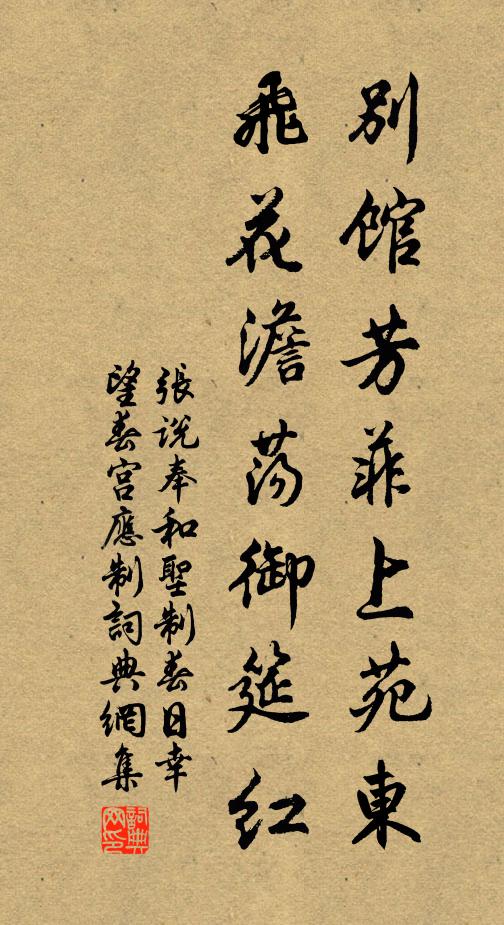 別館芳菲上苑東
飛花澹蕩御筵紅
張說奉和聖制春日幸
望春宮應制詞典網集
詞典網印